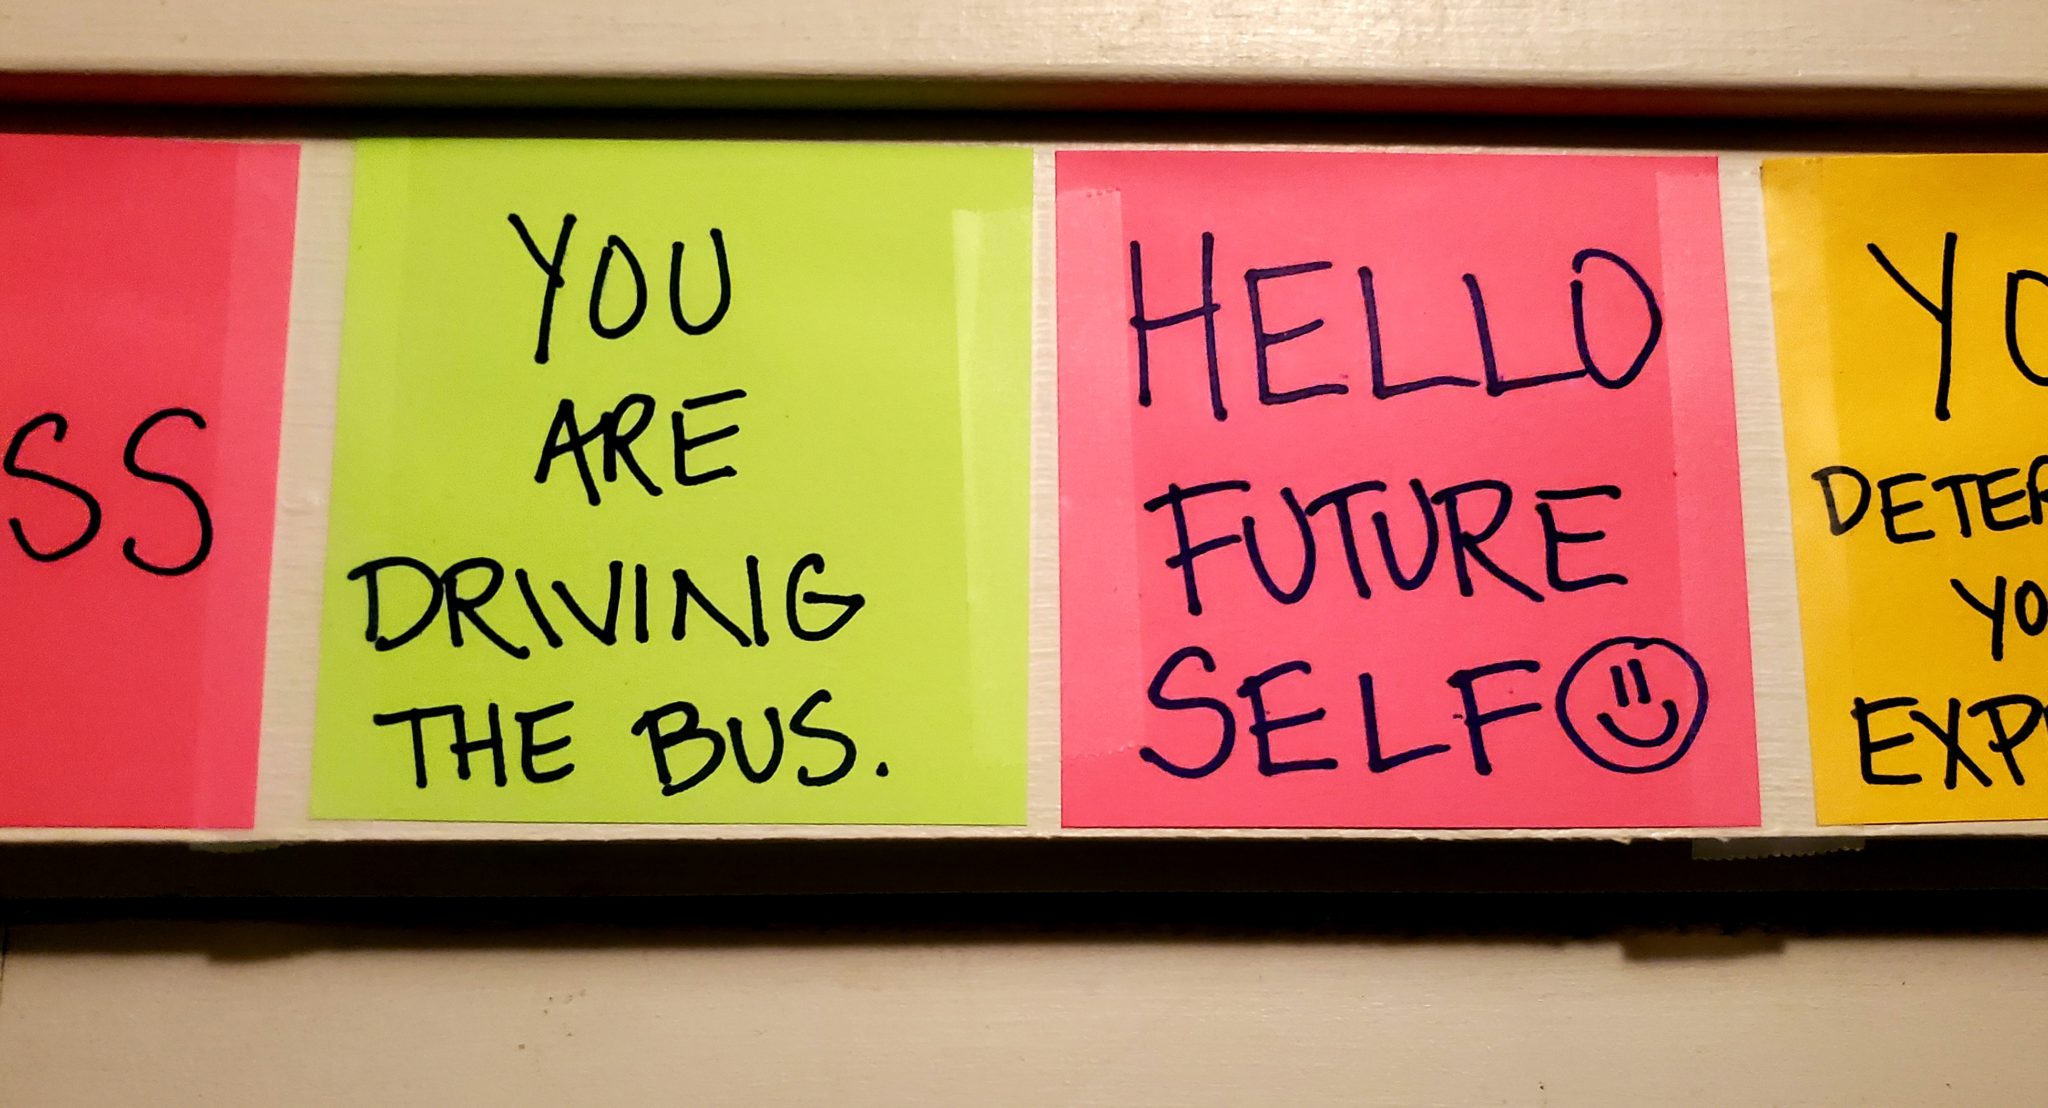 SS
YOU
ARE
DRIVING
THE BUS.
HELLO
FUTURE
SELF
YO
DETER
YO
EXP